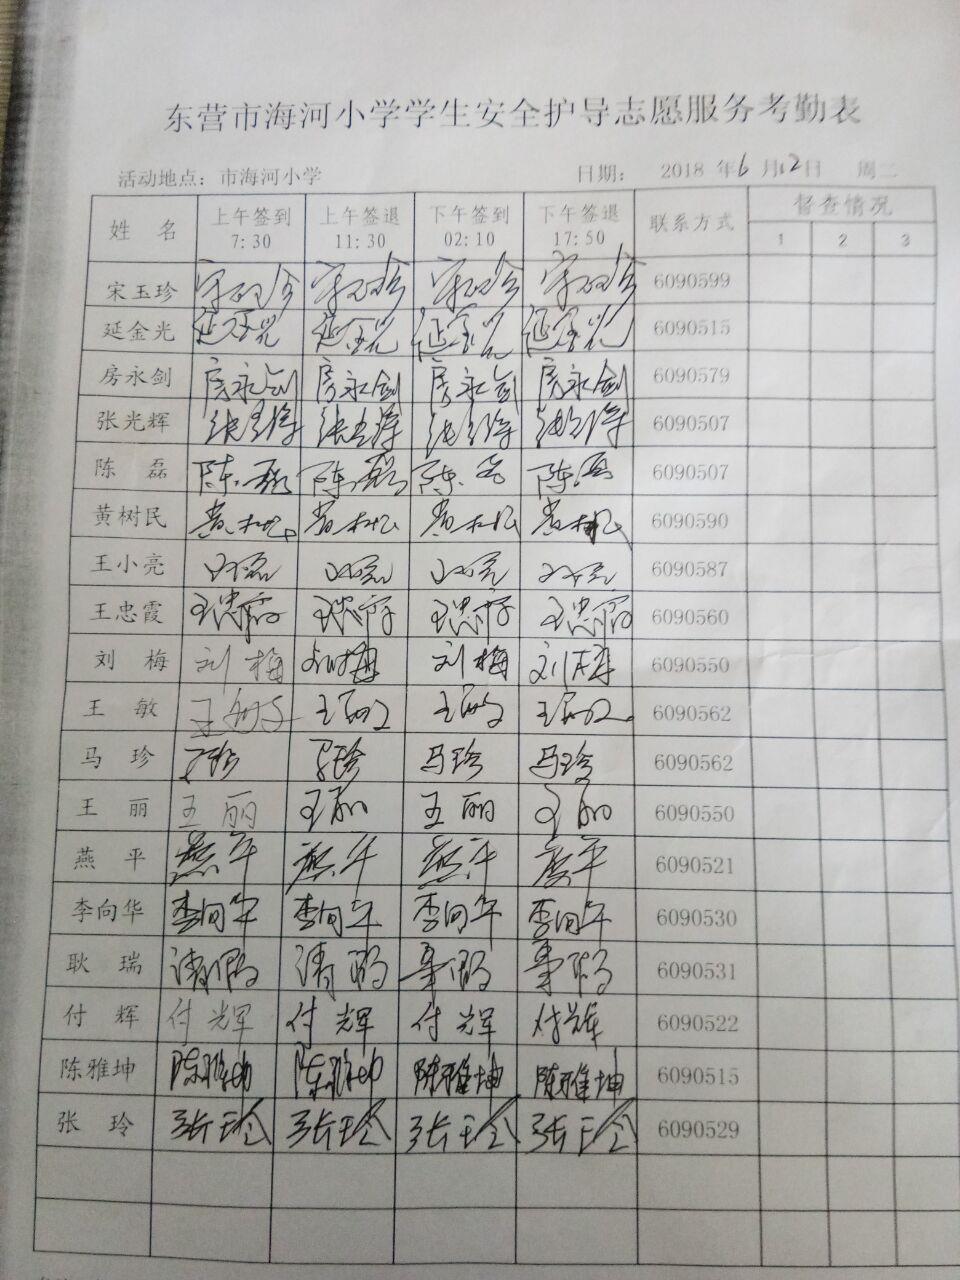 东营市海河小学学生安全护导志愿服务考勤表
活动地点：市海河小学 日期： 2018 年 6 月 12 日 周二
姓 名 上午签到 7:30 上午签退 11:30 下午签到 02:10 下午签退 17:50 联系方式 督查情况
1 2 3
宋玉珍 6090599
延金光 延金光 延金光 延金光 延金光 6090515
房永剑 房永剑 房永剑 房永剑 房永剑 6090579
张光辉 6090507
陈 磊 陈磊 陈磊 陈磊 陈磊 6090507
黄树民 6090590
王小亮 王小亮 王小亮 王小亮 王小亮 6090587
王忠霞 王忠霞 王忠霞 王忠霞 王忠霞 6090560
刘 梅 刘梅 刘梅 刘梅 刘梅 6090550
王 敏 王敏 王敏 王敏 王敏 6090562
马 珍 马珍 马珍 马珍 马珍 6090562
王 丽 王丽 王丽 王丽 王丽 6090550
燕 平 燕平 燕平 燕平 燕平 6090521
李向华 李向华 李向华 李向华 李向华 6090530
耿 瑞 6090531
付 辉 付辉 付辉 付辉 付辉 6090522
陈雅坤 陈雅坤 陈雅坤 陈雅坤 陈雅坤 6090515
张 玲 张玲 张玲 张玲 张玲 6090529